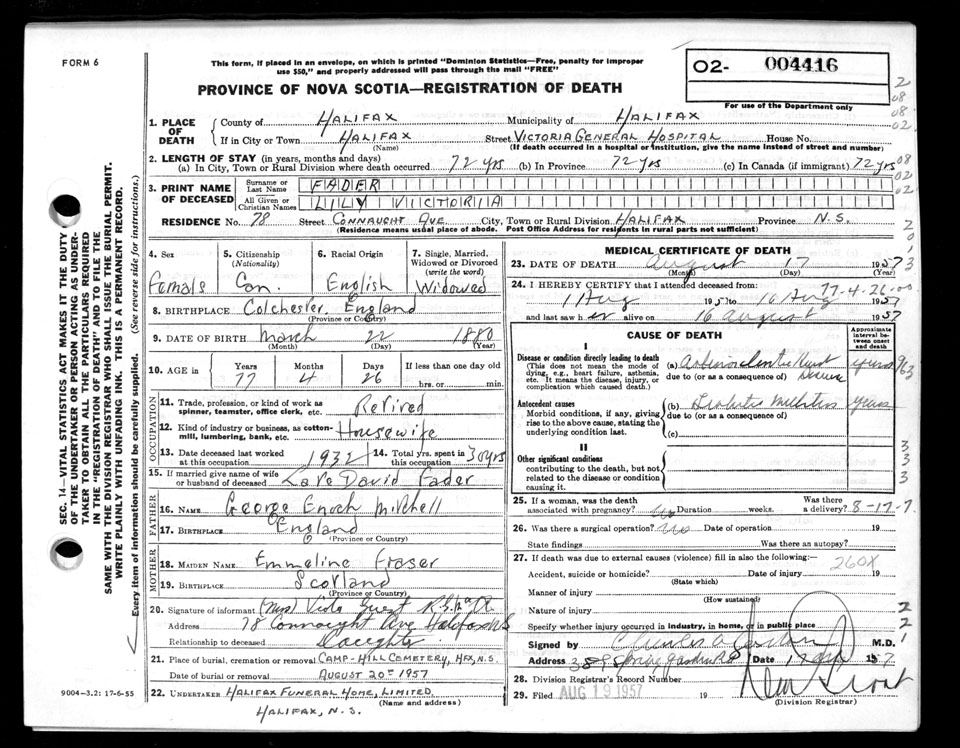 FORM 6
This form, if placed in an envelope, on which is printed "Dominion Statistics—Free, penalty for improper
use $50," and properly addressed will pass through the mail "FREE"
PROVINCE OF NOVA SCOTIA—REGISTRATION OF DEATH
O2- 004416
For use of the Department only
1. PLACE OF DEATH
County of HALIFAX Municipality of HALIFAX
If in City or Town HALIFAX Street VICTORIA GENERAL HOSPITAL House No.
(Name) (If death occurred in a hospital or institution, give the name instead of street and number)
2. LENGTH OF STAY (in years, months and days)
(a) In City, Town or Rural Division where death occurred 72 yrs (b) In Province 72 yrs (c) In Canada (if immigrant) 72 yrs
3. PRINT NAME OF DECEASED
Surname or Last Name FADER
All Given or Christian Names LILY VICTORIA
RESIDENCE No. 78 Street CONNAUGHT AVE. City, Town or Rural Division HALIFAX Province N.S.
(Residence means usual place of abode. Post Office Address for residents in rural parts not sufficient)
4. Sex Female
5. Citizenship (Nationality) Can.
6. Racial Origin English
7. Single, Married, Widowed or Divorced (write the word) Widowed
8. BIRTHPLACE Colchester, England
(Province or Country)
9. DATE OF BIRTH March 22 1880
(Month) (Day) (Year)
10. AGE in Years Months Days If less than one day old
77 4 26 hrs. or min.
OCCUPATION
11. Trade, profession, or kind of work as spinner, teamster, office clerk, etc. Retired
12. Kind of industry or business, as cotton-mill, lumbering, bank, etc. Housewife
13. Date deceased last worked at this occupation 1932
14. Total yrs. spent in this occupation 30 yrs
15. If married give name of wife or husband of deceased David Fader
FATHER
16. NAME George Enoch Mitchell
17. BIRTHPLACE England
(Province or Country)
MOTHER
18. MAIDEN NAME Emmeline Fraser
19. BIRTHPLACE Scotland
(Province or Country)
20. Signature of informant (Mrs) Viola Guest
Address 78 Connaught Ave Halifax NS
Relationship to deceased Daughter
21. Place of burial, cremation or removal CAMP-HILL CEMETERY, HFX, N.S.
Date of burial or removal AUGUST 20TH 1957
22. UNDERTAKER HALIFAX FUNERAL HOME, LIMITED.
(Name and address)
HALIFAX, N.S.
MEDICAL CERTIFICATE OF DEATH
23. DATE OF DEATH August 17 1957
(Month) (Day) (Year)
24. I HEREBY CERTIFY that I attended deceased from:
77-4-26-00
1 Aug 1957 to 16 Aug 1957
and last saw her alive on 16 August 1957
CAUSE OF DEATH
Approximate interval between onset and death
I
Disease or condition directly leading to death
(This does not mean the mode of dying, e.g., heart failure, asthenia, etc. It means the disease, injury, or complication which caused death.)
(a) Heart Disease years
due to (or as a consequence of)
Antecedent causes
Morbid conditions, if any, giving rise to the above cause, stating the underlying condition last.
(b) Diabetes Mellitus years
due to (or as a consequence of)
(c)
II
Other significant conditions
contributing to the death, but not related to the disease or condition causing it.
25. If a woman, was the death associated with pregnancy? No Duration weeks. Was there a delivery?
8-17-7
26. Was there a surgical operation? No Date of operation 19
State findings Was there an autopsy?
27. If death was due to external causes (violence) fill in also the following:—
260X
Accident, suicide or homicide? Date of injury 19
(State which)
Manner of injury
(How sustained)
Nature of injury
Specify whether injury occurred in industry, in home, or in public place
Signed by Charles A. Gordon M.D.
Address Spring Garden Rd Date 17 1957
28. Division Registrar's Record Number
29. Filed AUG 19 1957 19
(Division Registrar)
SEC. 14—VITAL STATISTICS ACT MAKES IT THE DUTY
OF THE UNDERTAKER OR PERSON ACTING AS UNDER-
TAKER TO OBTAIN ALL THE PARTICULARS REQUIRED
IN THE "REGISTRATION OF DEATH" AND TO FILE THE
SAME WITH THE DIVISION REGISTRAR WHO SHALL ISSUE THE BURIAL PERMIT.
WRITE PLAINLY WITH UNFADING INK. THIS IS A PERMANENT RECORD.
Every item of information should be carefully supplied. (See reverse side for instructions.)
9004-3.2: 17-6-55